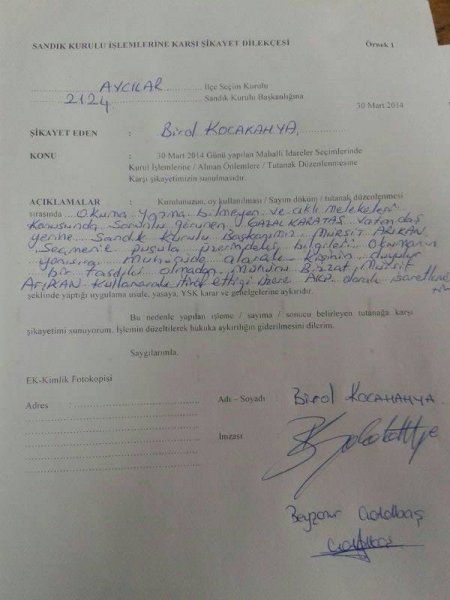 SANDIK KURULU İŞLEMLERİNE KARŞI ŞİKAYET DİLEKÇESİ Örnek 1
AVCILAR İlçe Seçim Kurulu
2124 Sandık Kurulu Başkanlığına
30 Mart 2014
ŞİKAYET EDEN : Birol KOCAKAHYA
KONU : 30 Mart 2014 Günü yapılan Mahalli İdareler Seçimlerinde
Kurul İşlemlerine / Alınan Önlemlere / Tutanak Düzenlenmesine
Karşı şikayetimizin sunulmasıdır.
AÇIKLAMALAR : Kurulunuzun, oy kullanılması / Sayım döküm / tutanak düzenlenmesi
sırasında Okuma yazma bilmeyen ve akli melekeleri
konusunda sorunlu görünen, KARATAŞ vatandaş
yerine Sandık Kurulu Başkanımın Mürsit ARIKAN
Seçmenle pusula üzerindeki bilgileri Okumanın
yanısıra alarak kişinin
bir tasdiki olmadan, Mührü Bizzat Mürsit
ARIKAN kullanarak ettiği üzere AKP
şeklinde yaptığı uygulama usule, yasaya, YSK karar ve genelgelerine aykırıdır.
Bu nedenle yapılan işleme / sayıma / sonucu belirleyen tutanağa karşı
şikayetimi sunuyorum. İşlemin düzeltilerek hukuka aykırılığın giderilmesini dilerim.
Saygılarımla.
EK-Kimlik Fotokopisi
Adres : Adı – Soyadı : Birol KOCAKAHYA
İmzası
Beyzanur